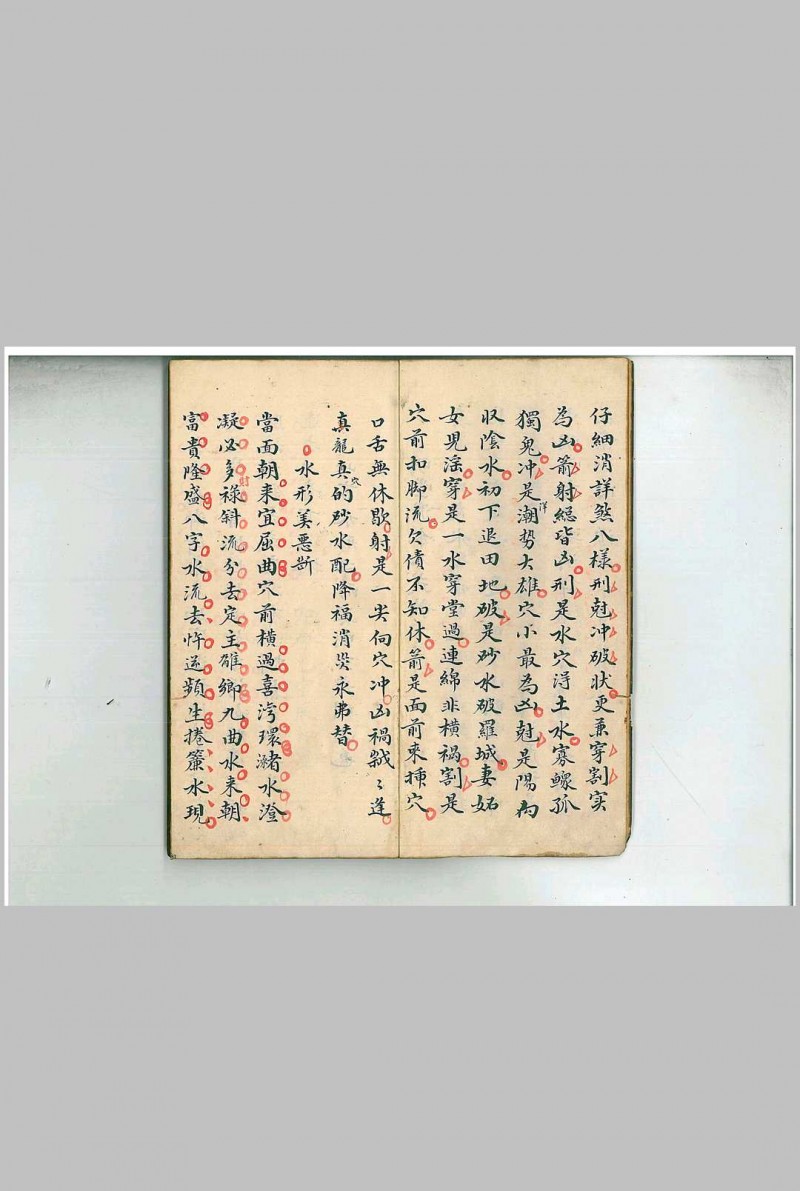 仔細消詳煞八樣刑尅冲破狀更兼穿割实
為凶箭射緫皆凶刑是水穴淂土水寡鰥孤
獨鬼冲是潮势大雄穴小最為凶尅是陽向
収陰水初下退田地破是砂水破羅城妻妬
女児滛穿是一水穿堂過連綿非橫禍割是
穴前扣脚流欠債不知休箭是面前來揷穴
口舌無休歇射是一尖向穴冲凶禍 〻逢
真龍真穴的砂水配降福消災永弗替
水形美惡断
當面朝来宜屈曲穴前橫過喜湾環瀦水澄
凝必多祿斜流分去定主離鄉九曲水来朝
富貴隆盛八字水流去忤逆頻生捲簾水現